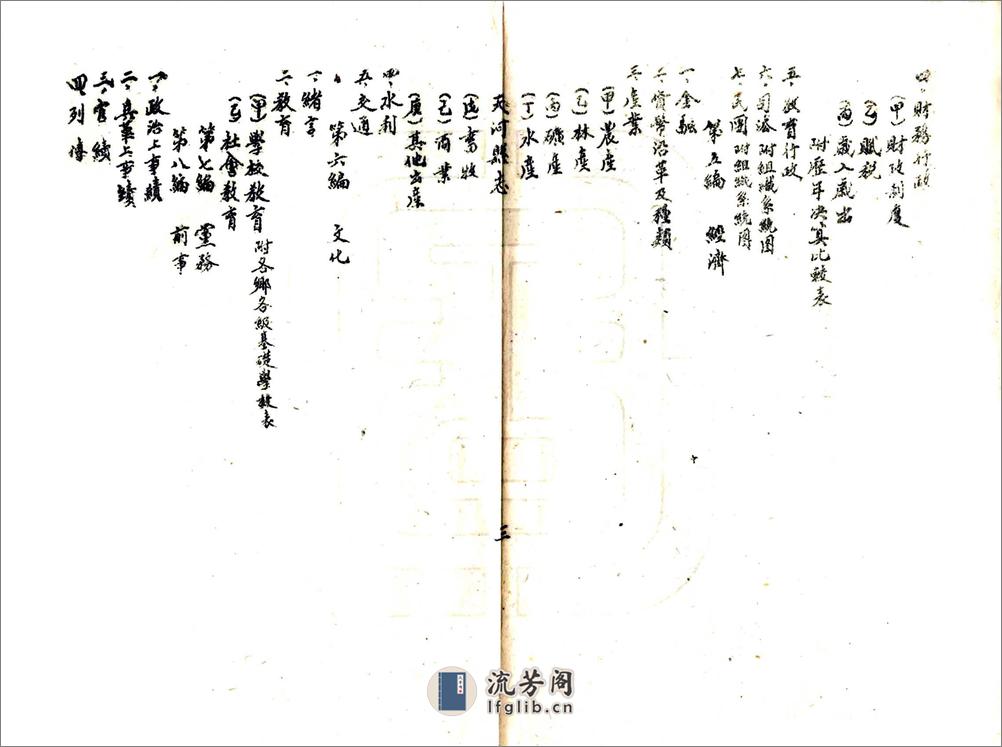 四、財務行政
(甲)財政制度
(乙)賦税
(丙)歲入歲出
附歷年決算比較表
五、教育行政
六、司法 附組織系統圖
七、民團 附組織系統圖
第五編 經濟
一、金融
二、貨幣沿革及種類
三、產業
(甲)農產
(乙)林產
(丙)礦產
(丁)水產
天河縣志
三
(戊)畜牧
(己)商業
(庚)其他出產
四、水利
五、交通
第六編 文化
一、緒言
二、教育
(甲)學校教育 附各鄉各級基礎學校表
(乙)社會教育
第七編 黨務
第八編 前事
一、政治上事績
二、兵事上事績
三、官績
四 列傳
流芳阁
lfglib.cn